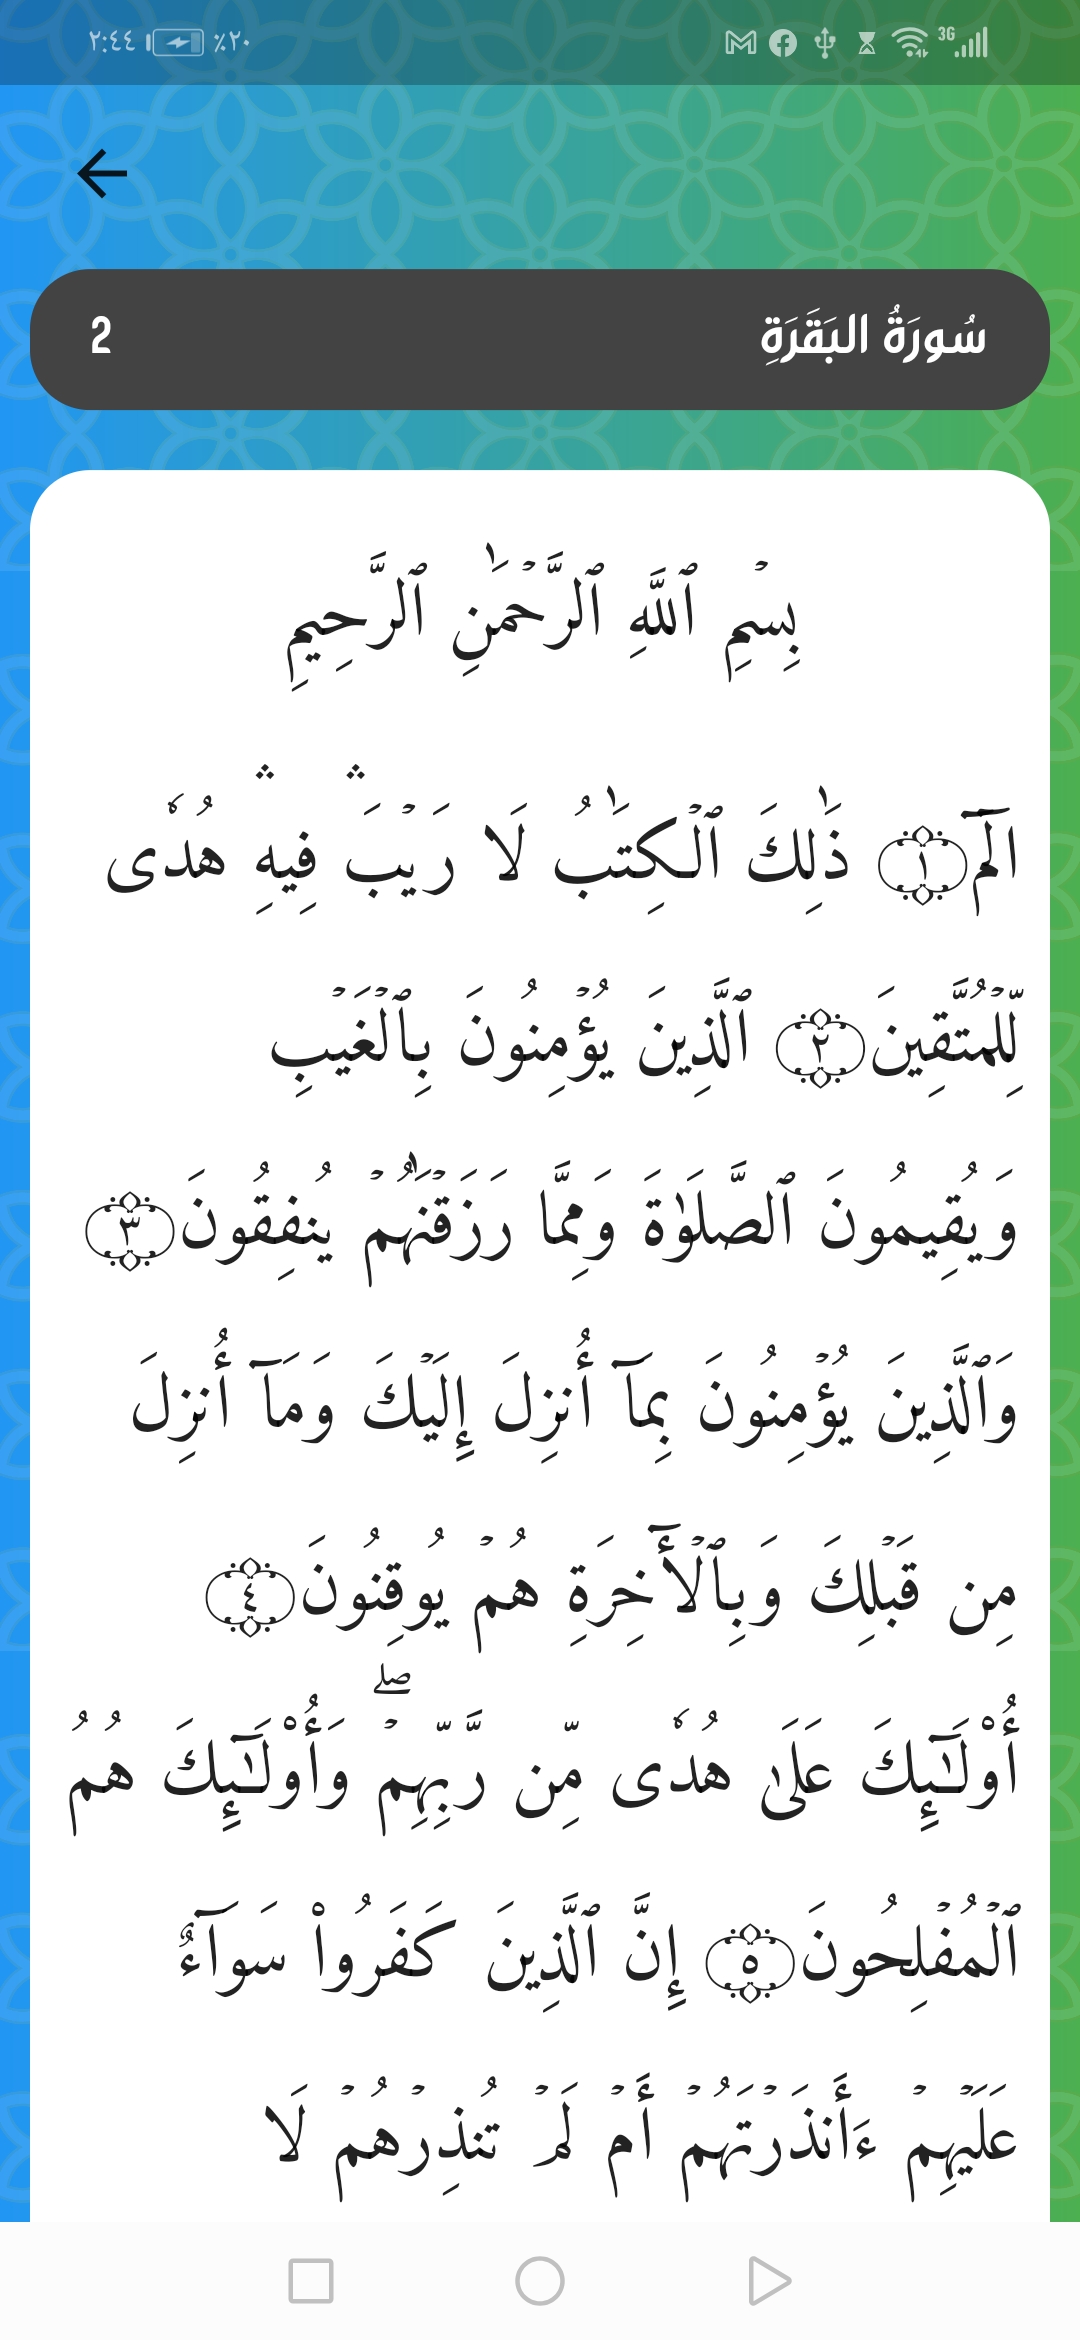 ٢:٤٤ ٪٢٠ 3G
سُورَةُ البَقَرَةِ 2
بِسۡمِ ٱللَّهِ ٱلرَّحۡمَٰنِ ٱلرَّحِيمِ
الٓمٓ ١ ذَٰلِكَ ٱلۡكِتَٰبُ لَا رَيۡبَۛ فِيهِۛ هُدٗى
لِّلۡمُتَّقِينَ ٢ ٱلَّذِينَ يُؤۡمِنُونَ بِٱلۡغَيۡبِ
وَيُقِيمُونَ ٱلصَّلَوٰةَ وَمِمَّا رَزَقۡنَٰهُمۡ يُنفِقُونَ ٣
وَٱلَّذِينَ يُؤۡمِنُونَ بِمَآ أُنزِلَ إِلَيۡكَ وَمَآ أُنزِلَ
مِن قَبۡلِكَ وَبِٱلۡأٓخِرَةِ هُمۡ يُوقِنُونَ ٤
أُوْلَٰٓئِكَ عَلَىٰ هُدٗى مِّن رَّبِّهِمۡۖ وَأُوْلَٰٓئِكَ هُمُ
ٱلۡمُفۡلِحُونَ ٥ إِنَّ ٱلَّذِينَ كَفَرُواْ سَوَآءٌ
عَلَيۡهِمۡ ءَأَنذَرۡتَهُمۡ أَمۡ لَمۡ تُنذِرۡهُمۡ لَا